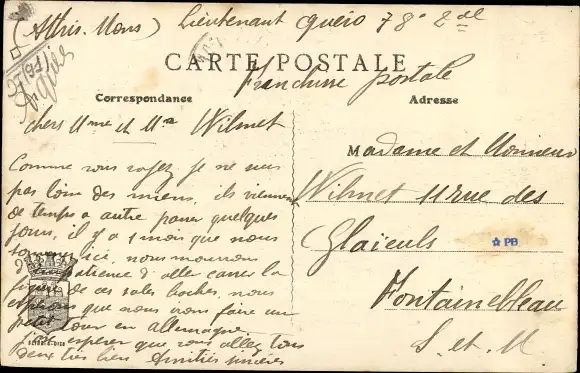 (Athis. Mons) Lieutenant quéro 78e 2del
CARTE POSTALE
Franchise postale
Correspondance
Adresse
chers Mme et Mr Wilmet
Comme vous voyez je ne suis
pas loin des miens, ils viennent
de temps a autre passer quelques
jours, il y a 1 mois que nous
sommes ici, nous mourrons
d'impatience d'aller casser la
figure de ces sales boches, nous
espérons que nous irons faire un
petit tour en Allemagne.
j'ose espérer que vous allez tous
deux très bien Amitiés sincères
Madame et Monsieur
Wilmet 11 rue des
Glaïeuls
PB
Fontainebleau
S. et M.